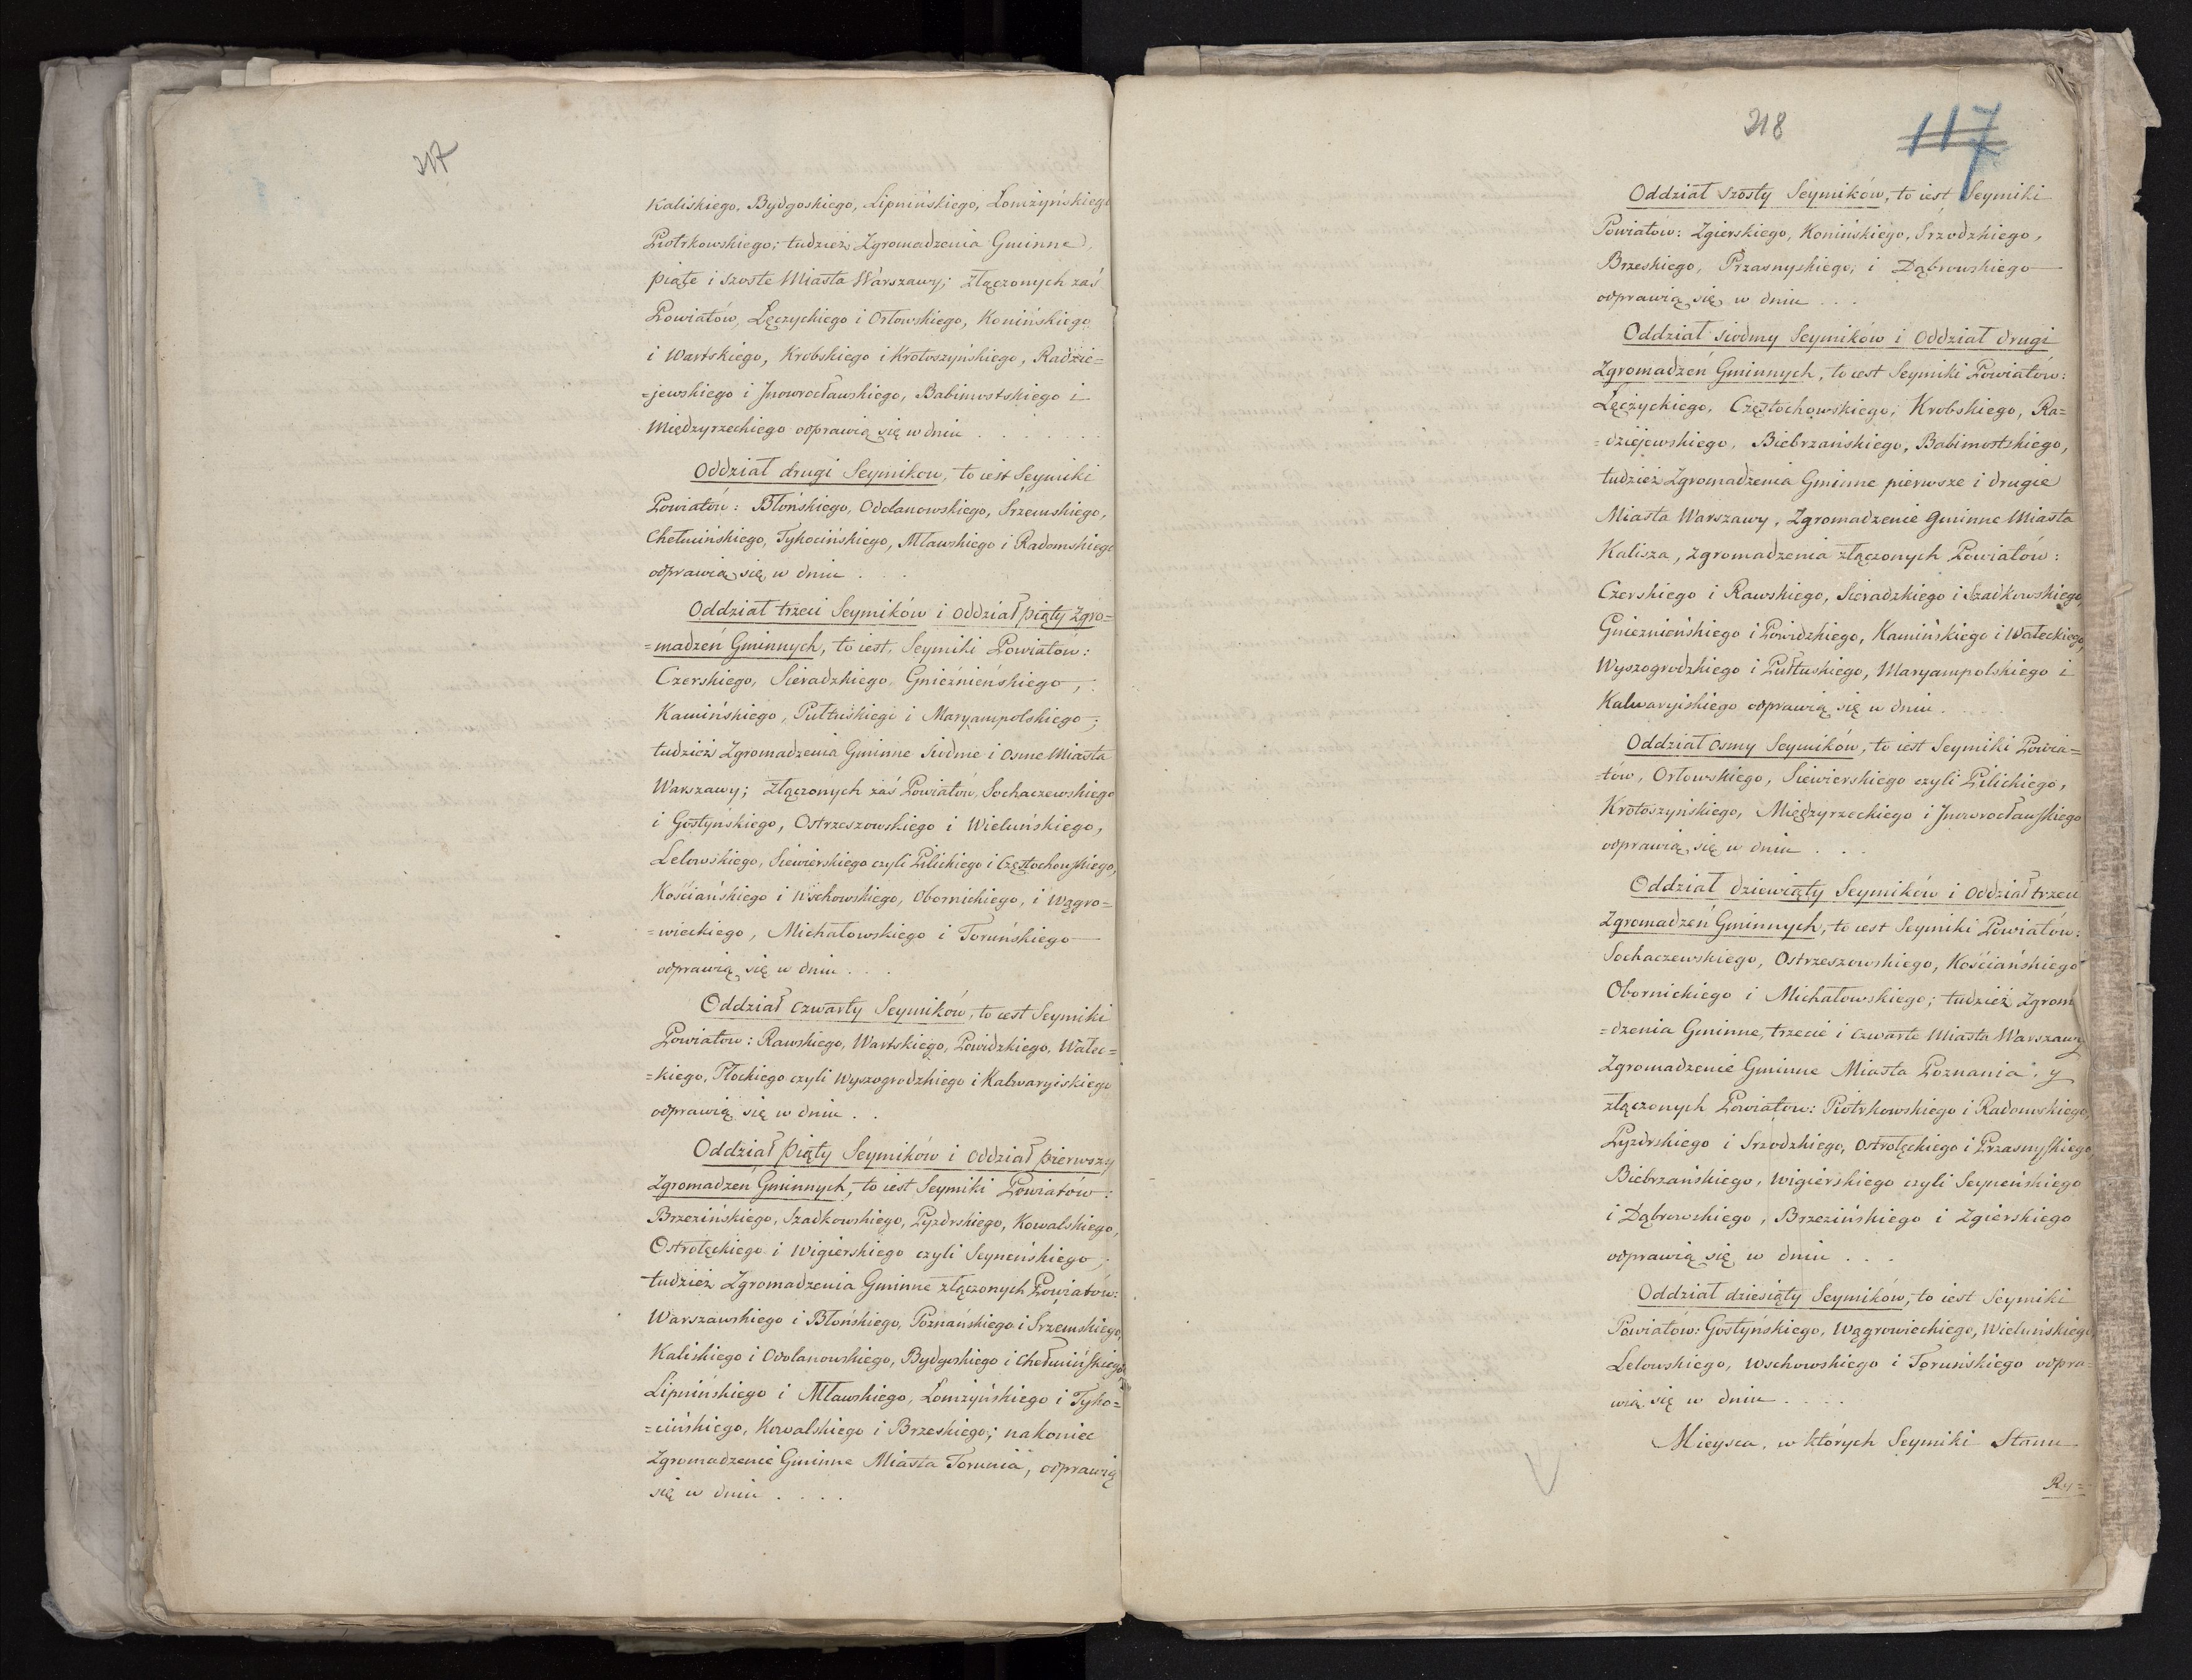 217
Kaliskiego, Bydgoskiego, Lipnińskiego, Łomżyńskiego
Piotrkowskiego; tudzież Zgromadzenia Gminne,
piąte i szoste Miasta Warszawy; złączonych zaś
Powiatów, Łęczyckiego i Orłowskiego, Konińskiego
i Wartskiego, Krobskiego i Krotoszyńskiego, Radzie=
=jewskiego i Jnowrocławskiego, Babimostskiego i
Międzyrzeckiego odprawią się w dniu . . . . . . .
Oddział drugi Seymikow, to iest Seymiki
Powiatów: Błońskiego, Odolanowskiego, Śrzemskiego,
Chełmińskiego, Tykocińskiego, Mławskiego i Radomskiego
odprawią się w dniu . . .
Oddział trzeci Seymików i oddział piąty Zgro=
=madzeń Gminnych, to iest, Seymiki Powiatów:
Czerskiego, Sieradzkiego, Gnieźnieńskiego,
Kamińskiego, Pułtuskiego i Maryampolskiego;
tudzież Zgromadzenia Gminne Siódme i Osme Miasta
Warszawy; złączonych zaś Powiatów, Sochaczewskiego
i Gostynskiego, Ostrzeszowskiego i Wieluńskiego,
Lelowskiego, Siewierskiego czyli Pilickiego i Częstochowskiego,
Kościańskiego i Wschowskiego, Obornickiego, i Wągro=
=wieckiego, Michałowskiego i Toruńskiego
odprawią się w dniu . . .
Oddział czwarty Seymików, to iest Seymiki
Powiatow: Rawskiego, Wartskiego, Powidzkiego, Wałec=
=kiego, Płockiego czyli Wyszogrodzkiego i Kalwaryiskiego
odprawią się w dniu . .
Oddział Piąty Seymików i oddział pierwszy
Zgromadzeń Gminnych, to iest Seymiki Powiatów:
Brzezińskiego, Szadkowskiego, Pyzdrskiego, Kowalskiego,
Ostrołęckiego i Wigierskiego czyli Seyneńskiego;
tudzież Zgromadzenia Gminne złączonych Powiatów:
Warszawskiego i Błońskiego, Poznańskiego i Śrzemskiego,
Kaliskiego i Odolanowskiego, Bydgoskiego i Chełmińskiego
Lipnińskiego i Mławskiego, Łomżyńskiego i Tyko=
=cińskiego, Kowalskiego i Brzeskiego; nakoniec
Zgromadzenie Gminne Miasta Torunia, odprawią
się w dniu . . . .
218
117
Oddział szosty Seymików, to iest Seymiki
Powiatów: Zgierskiego, Konińskiego, Śrzodzkiego,
Brzeskiego, Przasnyskiego, i Dąbrowskiego
odprawią się w dniu . . .
Oddział siódmy Seymików i Oddział drugi
Zgromadzeń Gminnych, to iest Seymiki Powiatów:
Łęczyckiego, Częstochowskiego, Krobskiego, Ra=
=dziejewskiego, Biebrzańskiego, Babimostskiego,
tudzież Zgromadzenia Gminne pierwsze i drugie
Miasta Warszawy, Zgromadzenie Gminne Miasta
Kalisza, zgromadzenia złączonych Powiatów:
Czerskiego i Rawskiego, Sieradzkiego i Szadkowskiego,
Gnieznieńskiego i Powidzkiego, Kamińskiego i Wałeckiego,
Wyszogrodzkiego i Pułtuskiego, Maryampolskiego i
Kalwaryiskiego odprawią się w dniu . . . .
Oddział osmy Seymików, to iest Seymiki Powia=
=tów, Orłowskiego, Siewierskiego czyli Pilickiego,
Krotoszyńskiego, Międzyrzeckiego i Jnowrocławskiego
odprawią się w dniu . . .
Oddział dziewiąty Seymików i oddział trzeci
Zgromadzeń Gminnych, to iest Seymiki Powiatów:
Sochaczewskiego, Ostrzeszowskiego, Kościańskiego
Obornickiego i Michałowskiego; tudzież Zgrom
=dzenia Gminne, trzecie i czwarte Miasta Warszawy
Zgromadzenie Gminne Miasta Poznania, y
złączonych Powiatow: Piotrkowskiego i Radomskiego,
Pyzdrskiego i Srzodzkiego, Ostrołęckiego i Przasnyskiego,
Biebrzańskiego, Wigierskiego czyli Seyneńskiego
i Dąbrowskiego, Brzezińskiego i Zgierskiego
odprawią się w dniu . . .
Oddział dziesiąty Seymików, to iest Seymiki
Powiatow: Gostyńskiego, Wągrowieckiego, Wieluńskiego,
Lelowskiego, Wschowskiego i Toruńskiego odpra=
wią się w dniu . . . .
Mieysca, w których Seymiki Stanu
Ry=